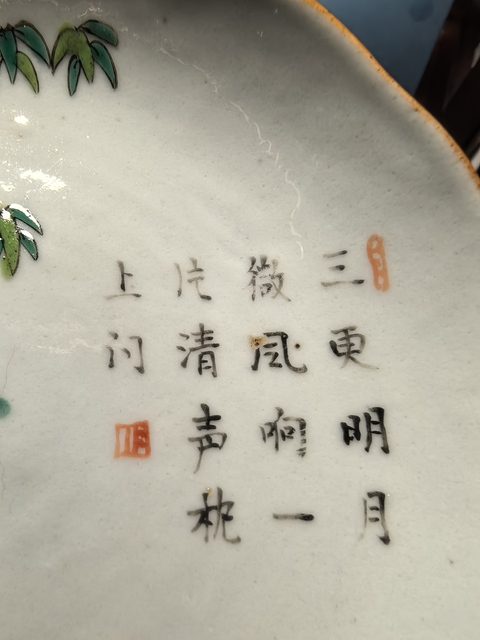 三更明月
微风响一
片清声枕
上问